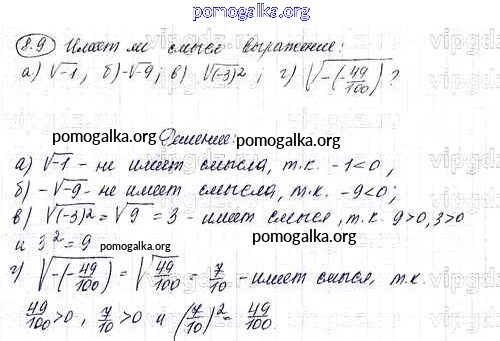 pomogalka.org
8.9 Имеет ли смысл выражение:
а) √-1, б) -√-9, в) √(-3)²; г) √-(-49/100)?
pomogalka.org
Решение:
pomogalka.org
а) √-1 - не имеет смысла, т.к. -1<0,
б) -√-9 - не имеет смысла, т.к. -9<0;
в) √(-3)² = √9 = 3 - имеет смысл, т.к. 9>0, 3>0
и 3² = 9
pomogalka.org
pomogalka.org
г) √-(-49/100) = √49/100 = 7/10 - имеет смысл, т.к.
49/100>0, 7/10>0 и (7/10)² = 49/100